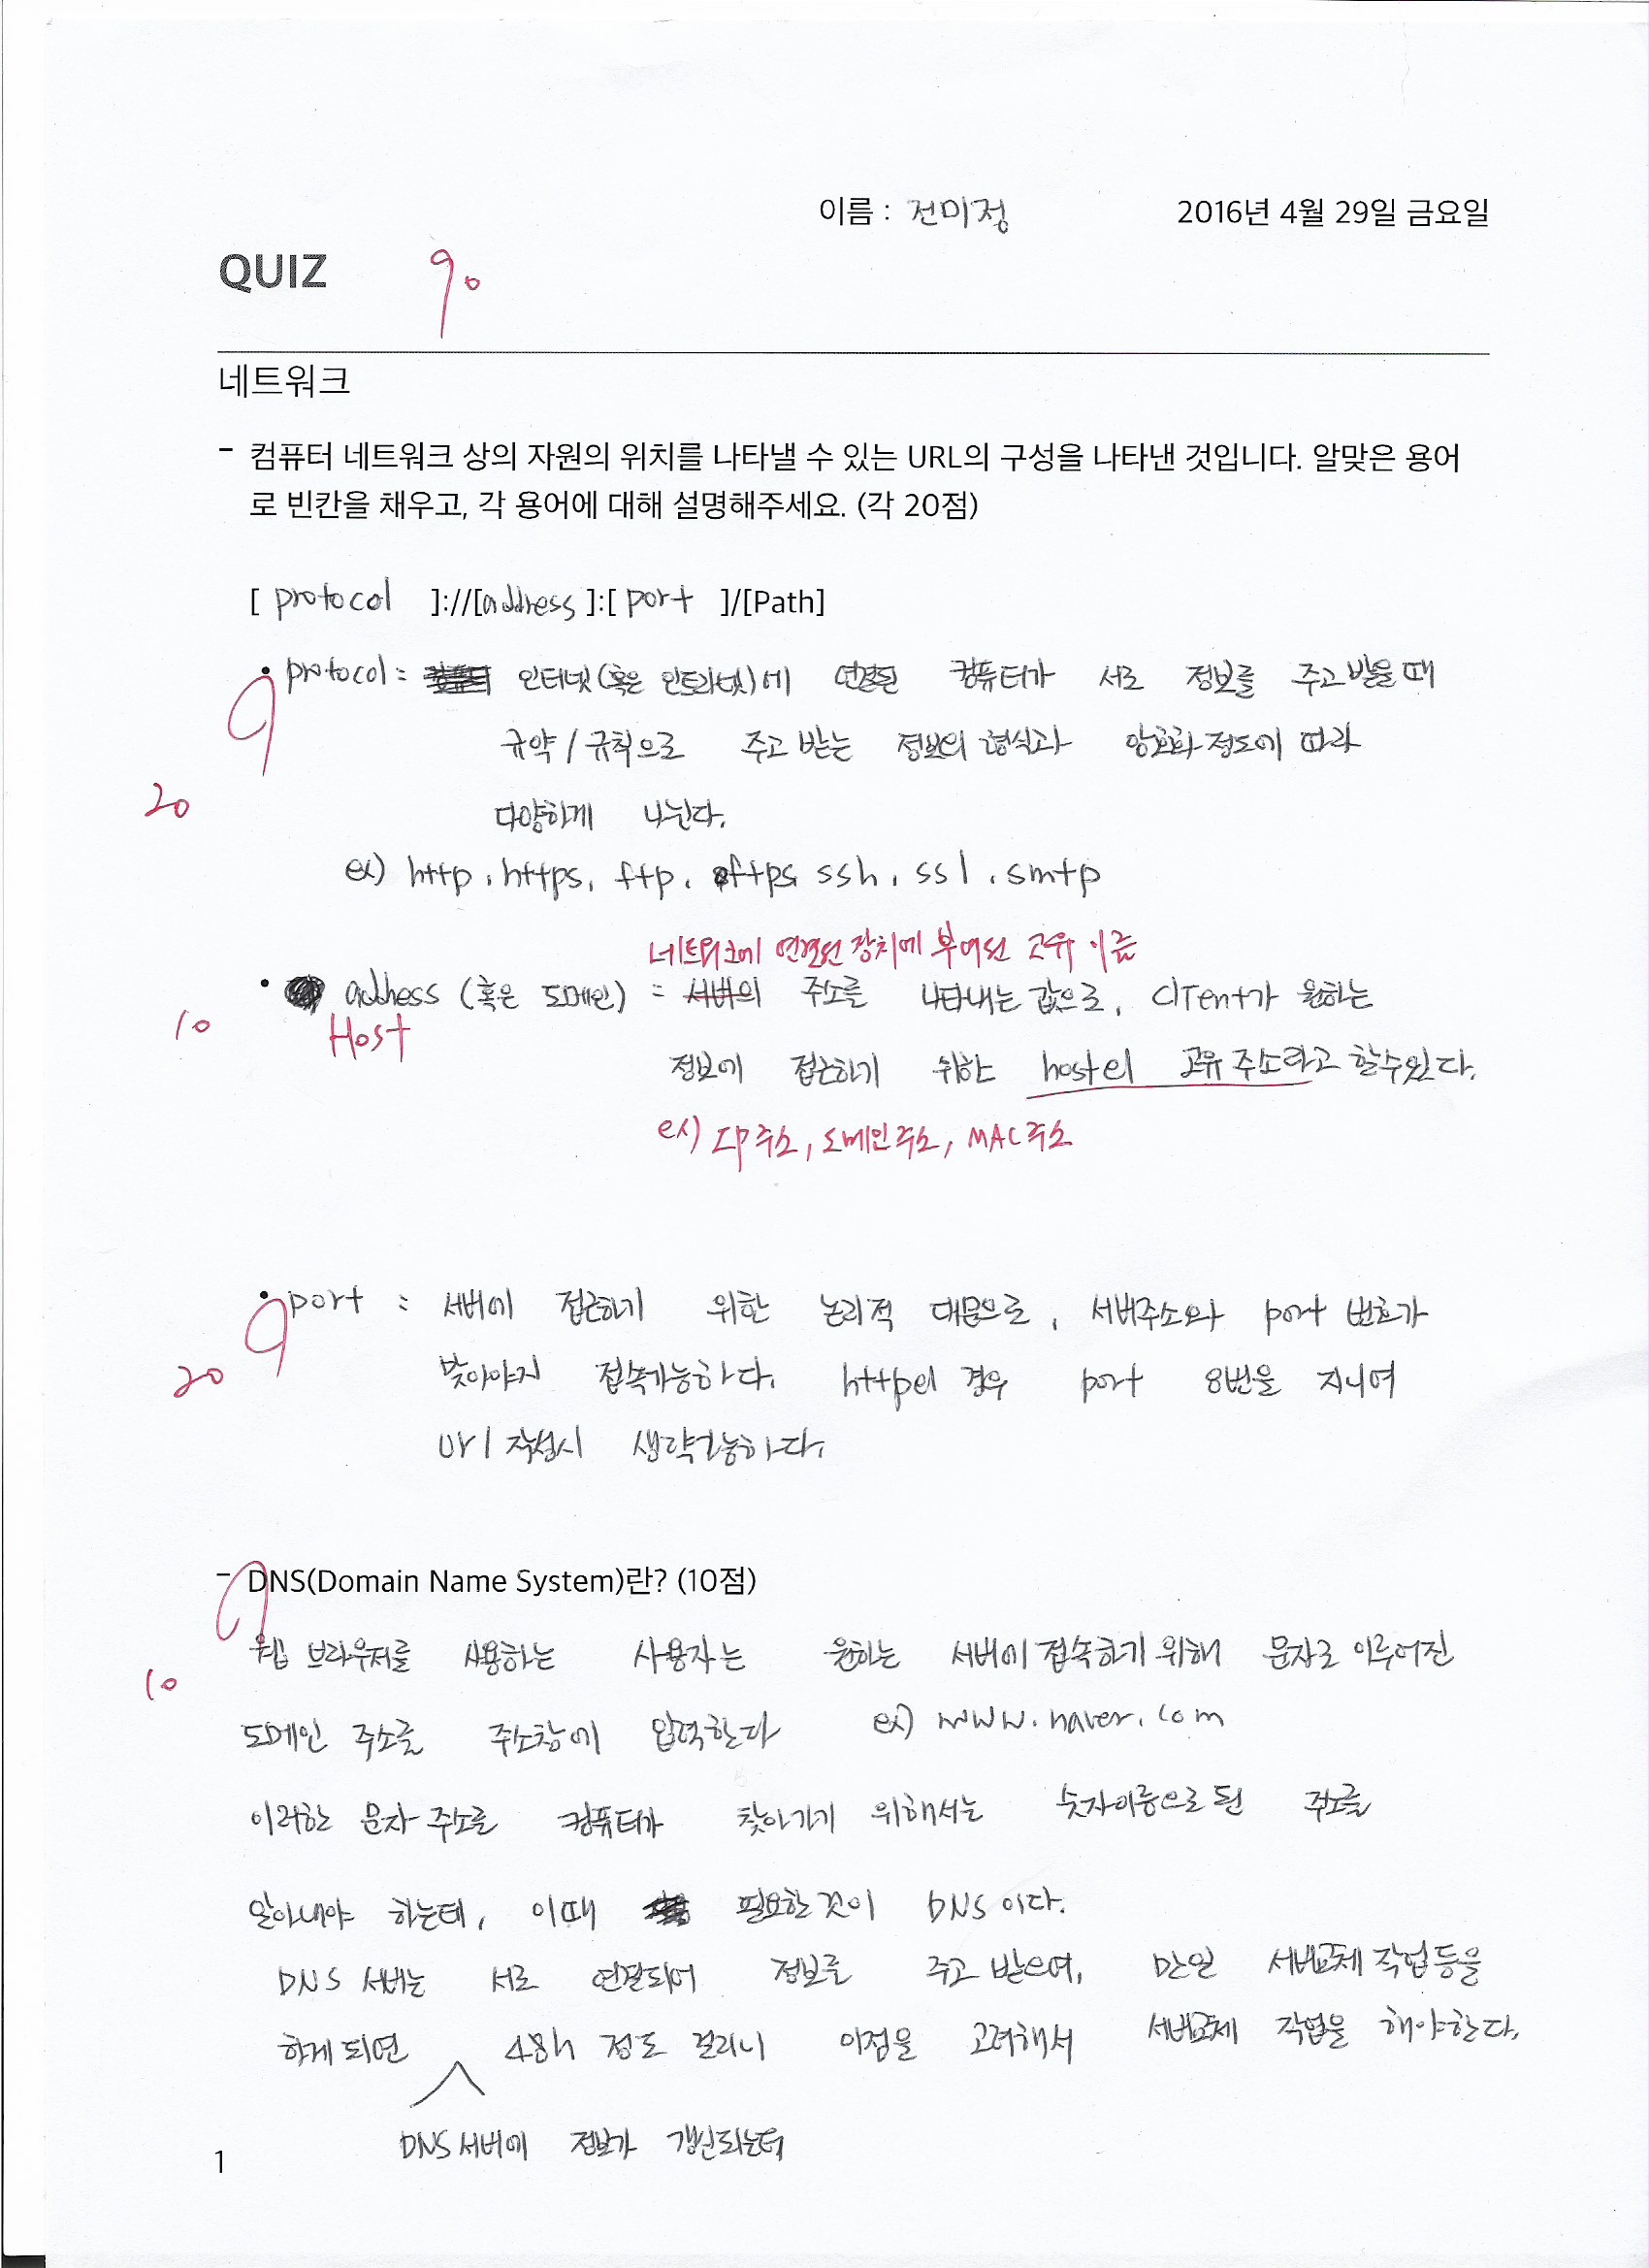 이름 : 전미정 2016년 4월 29일 금요일
QUIZ 90
네트워크
- 컴퓨터 네트워크 상의 자원의 위치를 나타낼 수 있는 URL의 구성을 나타낸 것입니다. 알맞은 용어
로 빈칸을 채우고, 각 용어에 대해 설명해주세요. (각 20점)
[ protocol ]://[address]:[ port ]/[Path]
• protocol : 인터넷(혹은 인트라넷)에 연결된 컴퓨터가 서로 정보를 주고 받을 때
규약/규칙으로 주고 받는 정보의 형식과 암호화 정도에 따라
20
다양하게 나뉜다.
ex) http, https, ftp, sftps ssh, ssl, smtp
네트워크에 연결된 장치에 부여된 고유 이름
• address (혹은 도메인) = 서버의 주소를 나타내는 값으로, client가 원하는
10 Host
정보에 접근하기 위한 host의 고유 주소라고 할수있다.
ex) IP주소, 도메인주소, MAC주소
• port : 서버에 접근하기 위한 논리적 대문으로, 서버주소와 port 번호가
20 맞아야지 접속가능하다. http의 경우 port 8번을 지니며
url 작성시 생략가능하다.
- DNS(Domain Name System)란? (10점)
웹 브라우저를 사용하는 사용자는 원하는 서버에 접속하기 위해 문자로 이루어진
10
도메인 주소를 주소창에 입력한다 ex) www.naver.com
이러한 문자 주소를 컴퓨터가 찾아가기 위해서는 숫자이름으로 된 주소를
알아내야 하는데, 이때 필요한 것이 DNS이다.
DNS 서버는 서로 연결되어 정보를 주고 받으며, 만일 서버교체 작업 등을
하게 되면 48h 정도 걸리니 이점을 고려해서 서버교체 작업을 해야한다.
DNS서버에 정보가 갱신되는데
1